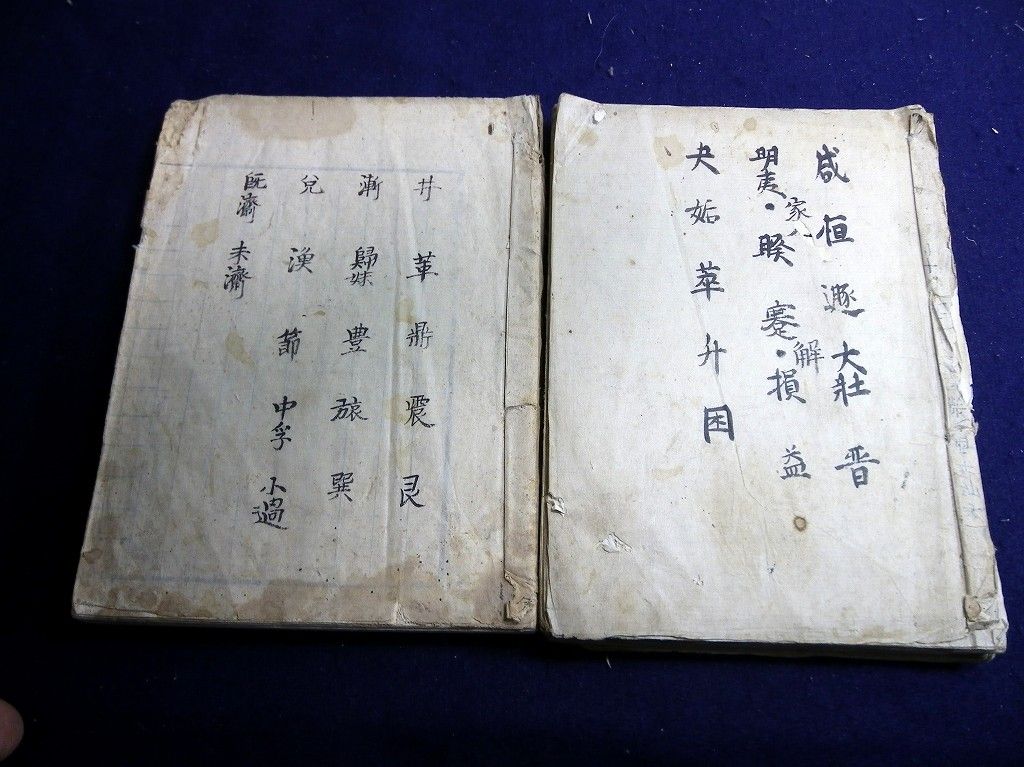 咸 恒 遯 大壯 晋
明夷・家人 暌 蹇・解 損 益
夬 姤 萃 升 困
井 革 鼎 震 艮
漸 歸妹 豊 旅 巽
兌 渙 節 中孚 小過
既濟 未濟